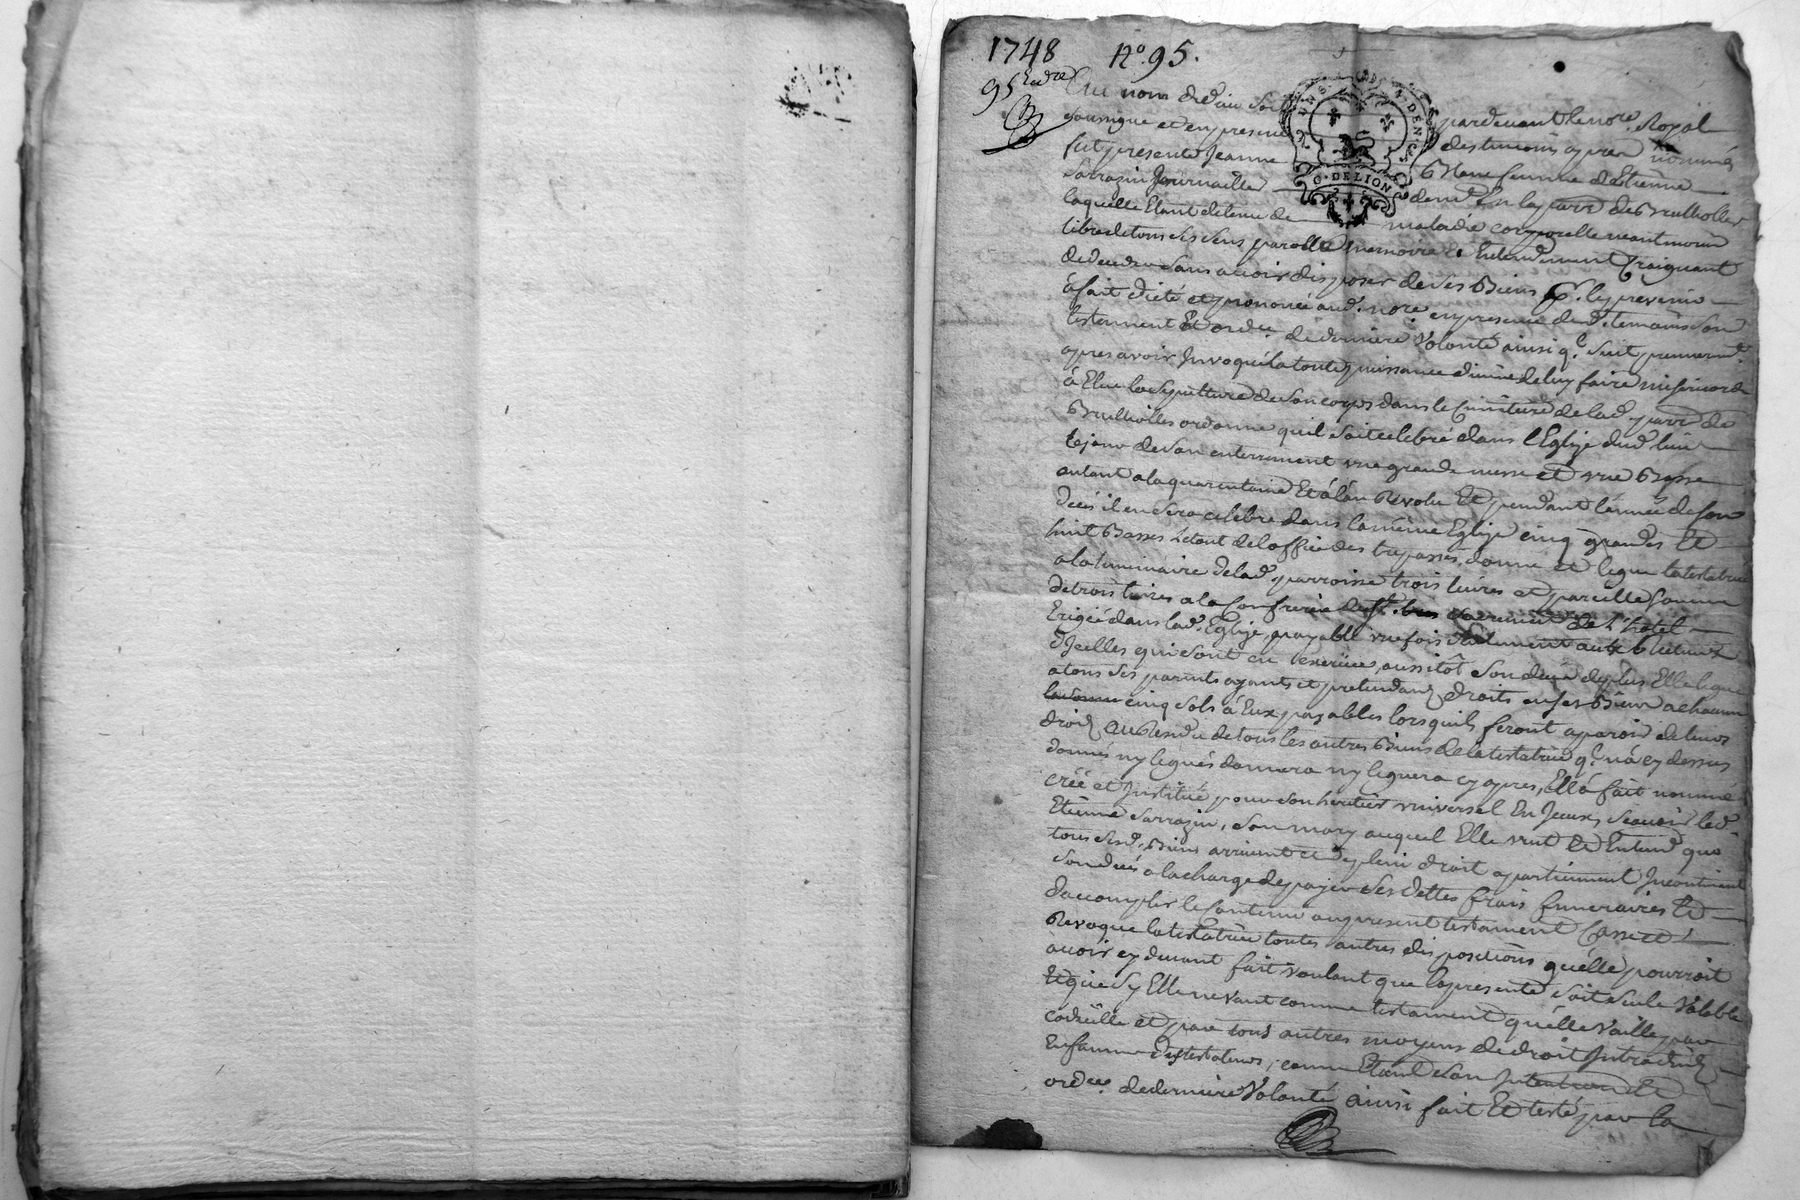 1748 No. 95.
95 Eadre
Au nom de dieu soit pardevant le nore. Royal
soussigne et en presence des temoins apres nommés
fut presente Jeanne Blanc femme d'Etienne
Sarrazin Journaillier demt. en la parre de Brulliolles
laquelle Etant detenue de maladie corporelle neantmoins
libre de tous ses sens parolle memoire & Entendement Craignant
de deceder sans avoir disposer de ses Biens pr. les prevenir
à fait dicté et prononcé aud. nore. en presence desd. temoins son
testament Et ordce. de derniere Volonté ainsi q. suit premieremt.
apres avoir Invoqué la toute puissance divine de luy faire misericorde
à Elue la Sepulture de son corps dans le Cimitiere de lad. parre de
Brulliolles ordonne quil soit celebré dans l'Eglise dud. lieu
le jour de son enterrement une grande messe et une Basse
autant a la quarantaine Et à l'an Revolu Et pendant l'année de son
decés il en sera celebre dans la même Eglise cinq grandes Et
huit Basses Létout de l'office des trepassés, donne et legue la testatrice
a la luminaire de lad. parroisse trois livres et pareille somme
de trois livres a la Confrerie du St. Sacrement de L'hotel
Erigée dans lad. Eglise, payable une fois seulement aux
d'Icelles qui sont en exercice, aussitôt son decés de plus Elle legue
a tous ses parents ayants et pretendants droits en ses Biens a chacun
cinq Sols à Eux payables lorsquils feront aparoir de leurs
droits au Residu de tous les autres Biens de la testatrice q. n'à cy dessus
donnés ny legués donnera ny leguera cy apres, Ell'à fait nommé
créé et Institué pour son heritier universel En Iceux, Scavoir led.
Etienne Sarrazin, son mary auquel Elle veut Et Entend que
tous sesd. Biens arrivent et de plein droit apartiennent Incontinent
son decés a la charge de payer ses dettes frais funeraires Et
d'accomplir le Contenu au present testament Casse et
Revoque la testatrice toutes autres dispositions qu'elle pourroit
avoir cy devant fait voulant que la presente soit seule Valable
Et que sy Elle ne vaut comme testament qu'elle Vaille par
codicille et par tous autres moyens de droit Introduits
En faveur des testateurs, comme Etant son Intention Et
ordce. de derniere Volonté ainsi fait Et testé par la
G. DE LION